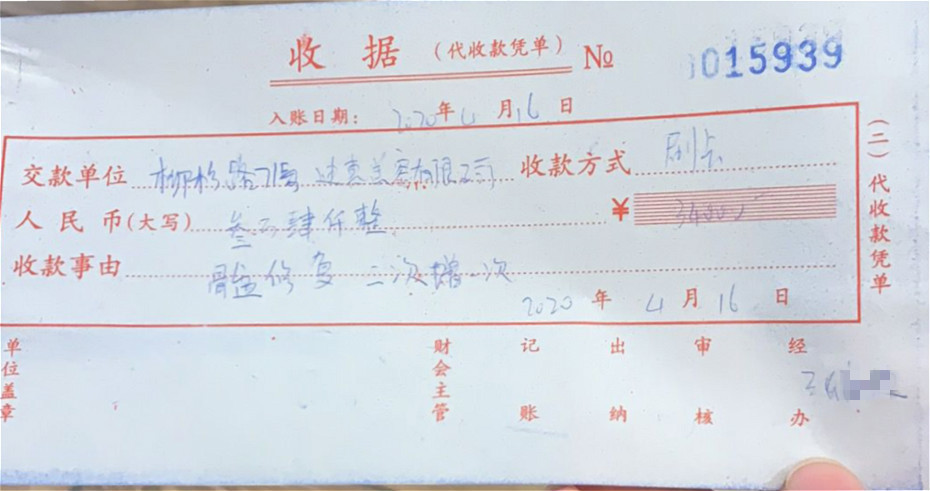 收据 (代收款凭单) № 015939
入账日期: 2020年4月16日
交款单位 柳杉路71号 美容有限公司 收款方式 刷卡
人民币(大写) 叁万肆仟整 ¥ 34000
收款事由 骨盆修复 二次赠一次
2020年4月16日
(二)代收款凭单
单位盖章 财会主管 记账 出纳 审核 经办